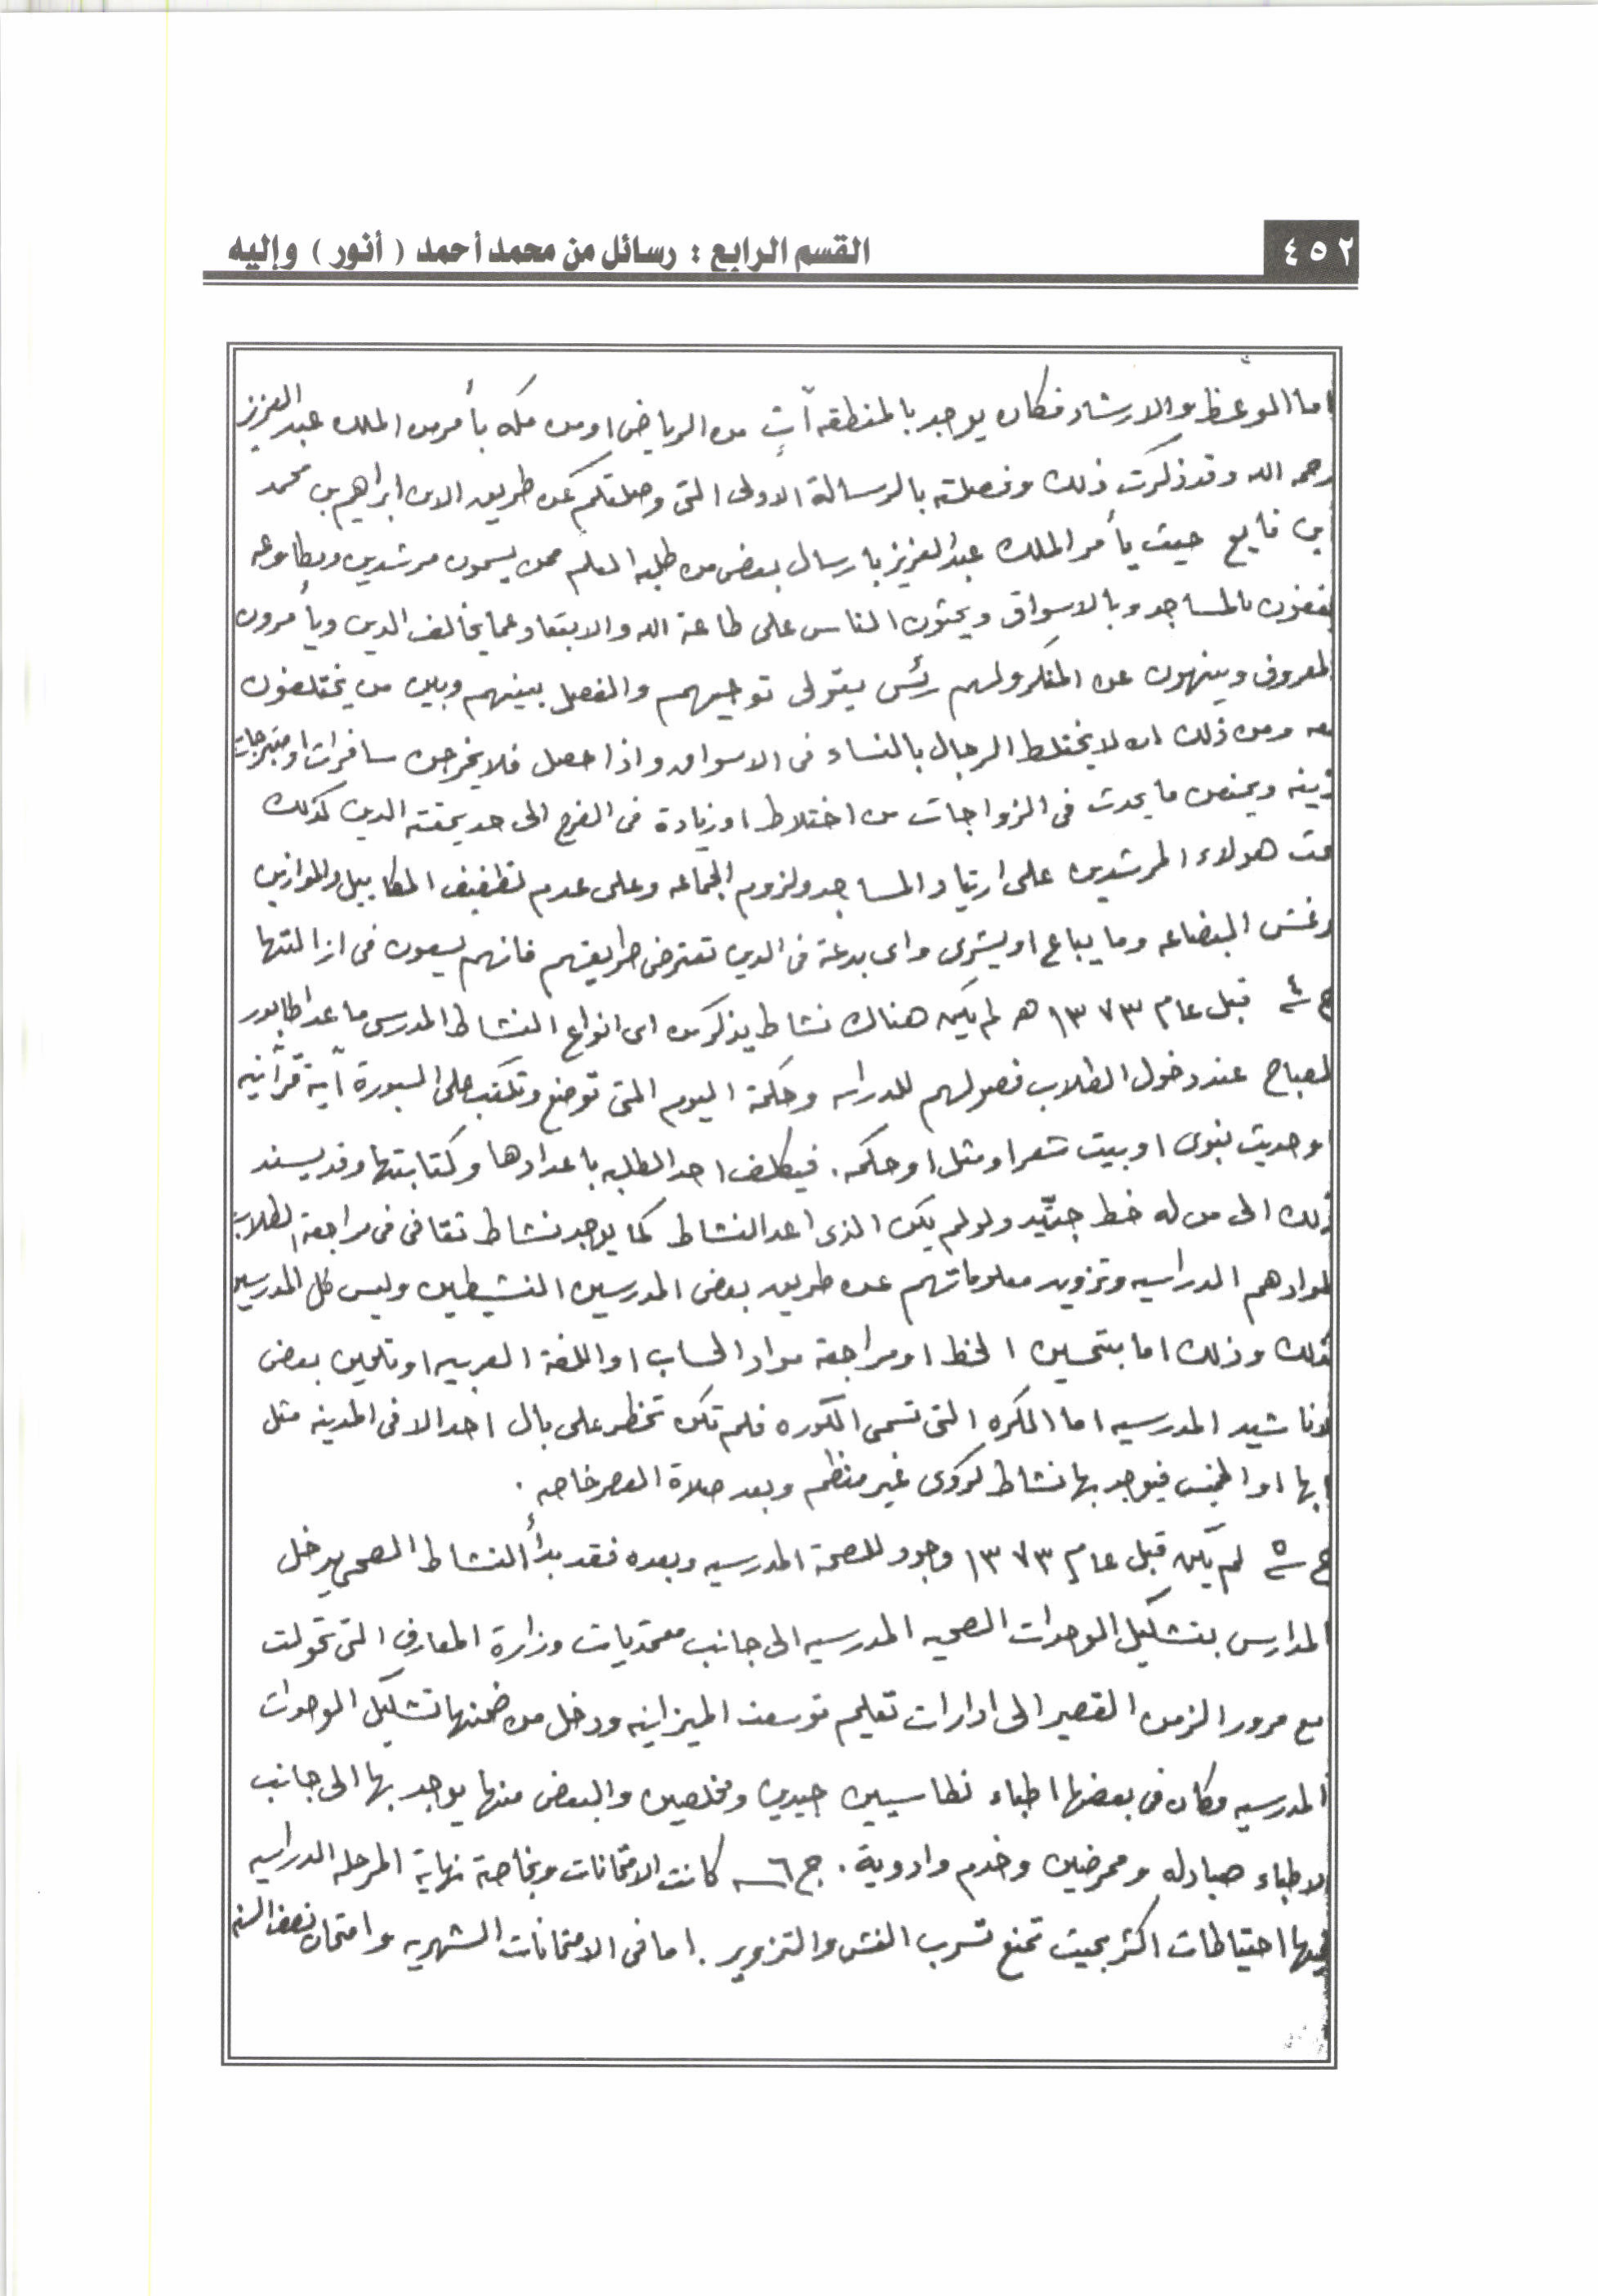 ٤٥٢
القسم الرابع : رسائل من محمد أحمد ( أنور ) وإليه
اما الوعظ والارشاد فكان يوجد بالمنطقه آتٍ من الرياض او من مكه بأمر من الملك عبد العزيز
رحمه الله وقد ذكرت ذلك وفصلته بالرسالة الاولى التى وصلتكم عن طريق الابن ابراهيم بن محمد
ابن فايع حيث يأمر الملك عبد العزيز بارسال بعض من طلبه العلم ممن يسمون مرشدين ومطاوعه
يقفون بالمساجد وبالاسواق ويحثون الناس على طاعة الله والابتعاد عما يخالف الدين ويأمرون
المعروف وينهون عن المنكر ولهم رئس يتولى توجيههم والفصل بينهم وبين من يختلفون
معه ومن ذلك ان لا يختلط الرجال بالنساء فى الاسواق واذا حصل فلا يخرجن سافرات او متبرجات
زينه ويمنعون ما يحدث فى الزواجات من اختلاط او زيادة فى الفرح الى حد يمقته الدين كذلك
حث هولاء المرشدين على ارتياد المساجد ولزوم الجماعه وعلى عدم تطفيف المكاييل والموازين
وغش البضاعه وما يباع او يشرى واى بدعة فى الدين تعترض طريقهم فانهم يسعون فى ازالتها
ج ٤ قبل عام ١٣٧٣ هـ لم يكن هناك نشاط يذكر من اى انواع النشاط المدرسى ما عدا طابور
الصباح عند دخول الطلاب فصولهم للدراسه وحكمة اليوم التى توضع وتكتب على السبورة آية قرآنيه
او حديث نبوى او بيت شعر او مثل او حكمه . فيكلف احد الطلبه باعدادها وكتابتها وقد يسند
ذلك الى من له خط جيّد ولو لم يكن الذى اعد النشاط كما يوجد نشاط ثقافى فى مراجعة الطلاب
لموادهم الدراسيه وتزويد معلوماتهم عن طريق بعض المدرسين النشيطين وليس كل المدرسين
كذلك وذلك اما بتحسين الخط او مراجعة مواد الحساب او اللغة العربيه او تلحين بعض
الاناشيد المدرسيه اما الكره التى تسمى الكوره فلم تكن تخطر على بال احد الا فى المدينه مثل
ابها او الخميس فيوجد بها نشاط كروى غير منظم وبعد صلاة العصر خاصه .
ج ٥ لم يكن قبل عام ١٣٧٣ وجود للصحة المدرسيه وبعده فقد بدأ النشاط الصحى يدخل
المدارس بتشكيل الوحدات الصحيه المدرسيه الى جانب معتمديات وزارة المعارف التى تحولت
مع مرور الزمن القصير الى ادارات تعليم توسعت الميزانيه ودخل من ضمنها تشكيل الوحدات
المدرسيه وكان فى بعضها اطباء نطاسيين جيدين ومخلصين والبعض منها يوجد بها الى جانب
الاطباء صيادله وممرضين وخدم وادوية . ج ٦ كانت الامتحانات وبخاصة نهاية المرحله الدراسيه
فيها احتياطات اكثر بحيث تمنع تسرب الغش والتزوير . اما فى الامتحانات الشهريه وامتحان نصف السنه